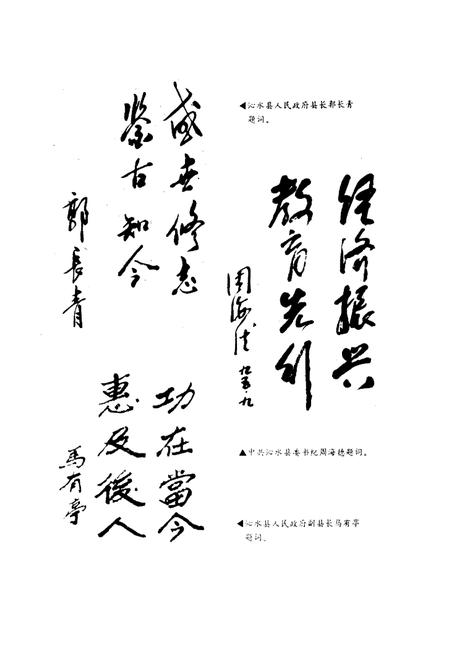 盛世修志
鉴古知今
郭長青
◀沁水县人民政府县长郭长青
题词。
经济振兴
教育先行
周海德
九五.九
▲中共沁水县委书纪周海德题词。
功在當今
惠及後人
馬有亭
◀沁水县人民政府副县长马有亭
题词。